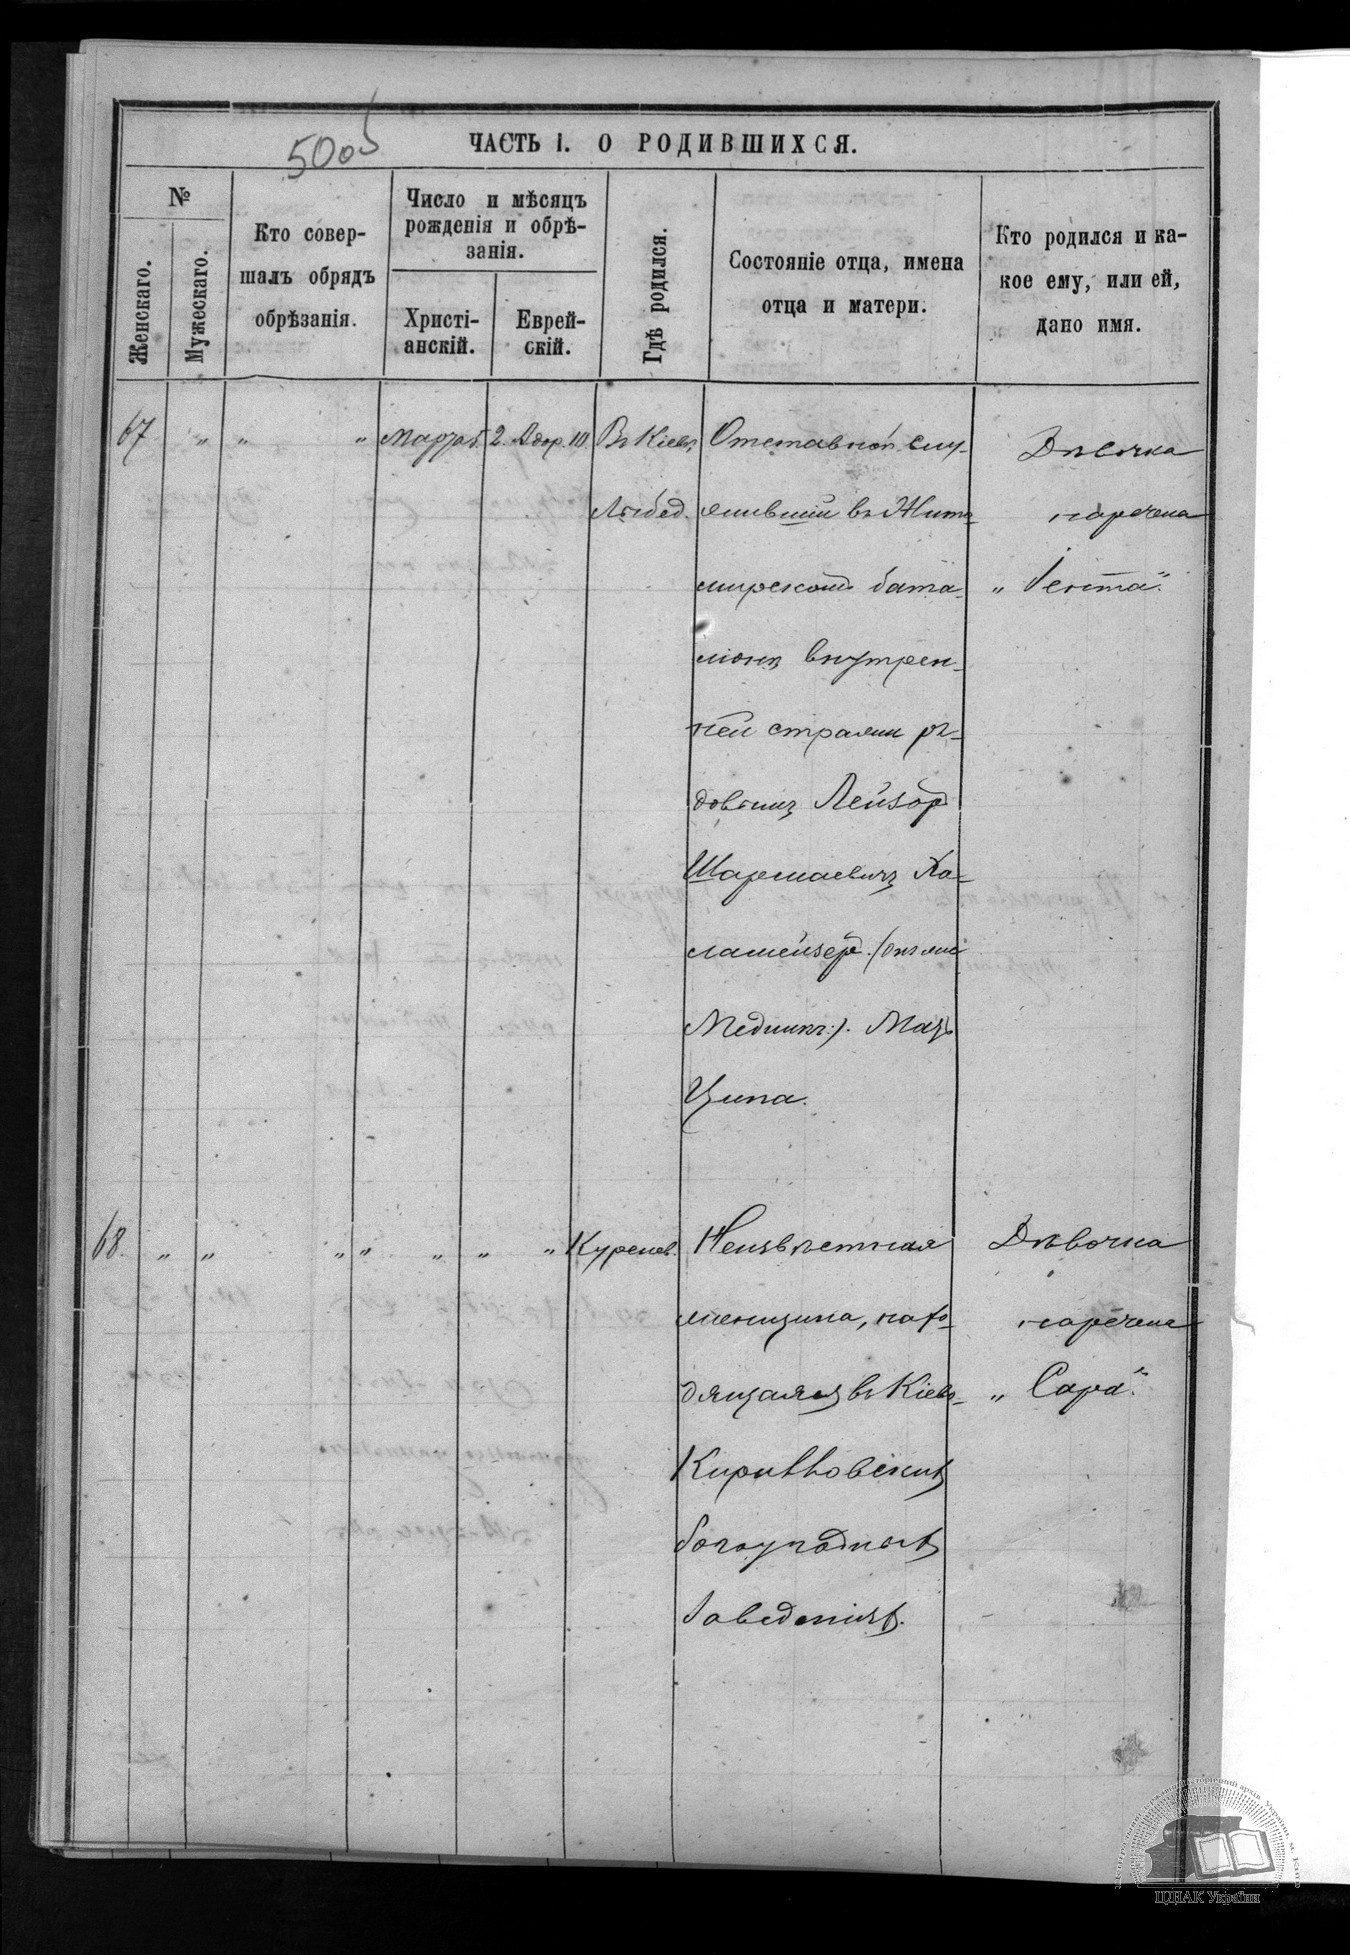 5005
ЧАСТЬ I. О РОДИВШИХСЯ.
№
Женскаго.
Мужескаго.
Кто совер-
шалъ обрядъ
обрѣзанія.
Число и мѣсяцъ
рожденія и обрѣ-
занія.
Христі-
анскій.
Еврей-
скій.
Гдѣ родился.
Состояніе отца, имена
отца и матери.
Кто родился и ка-
кое ему, или ей,
дано имя.
67 " " " Марта 2. Адар. 10 Въ Кіевѣ,
Лыбед.
Отставной слу-
жившій въ Жито-
мирскомъ бата-
ліонѣ внутрен-
ней стражи ря-
довымъ Лейзоръ
Ха-
(онъ же
Медникъ). Мать
Ципа.
Дѣвочка
наречена
"Гента".
68. " " " " " " " Куренев.
Неизвѣстная
женщина, нахо-
дящаяся въ Кіево-
Кирилловскихъ
богоугодныхъ
заведеніяхъ.
Дѣвочка
наречена
"Сара".
ЦДІАК України